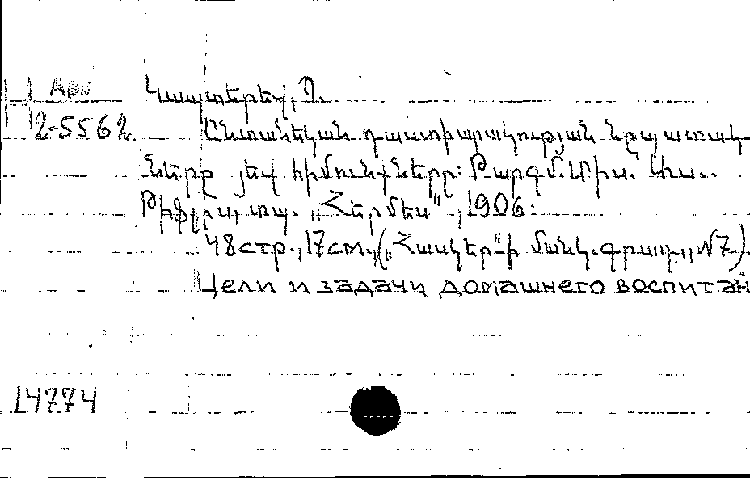 Арм
2-5562
Կապտերեվ, Պ.
Ընտանեկան դաստիարակության նպատակ-
ները յեվ հիմունքները: Թարգմ. Միս.
Թիֆլիս, տպ. „Հերմես", 1906.
48стр., 17см., („Հասկեր"-ի մանկ. գրադ., №7).
Цели и задачи домашнего воспитан
14774